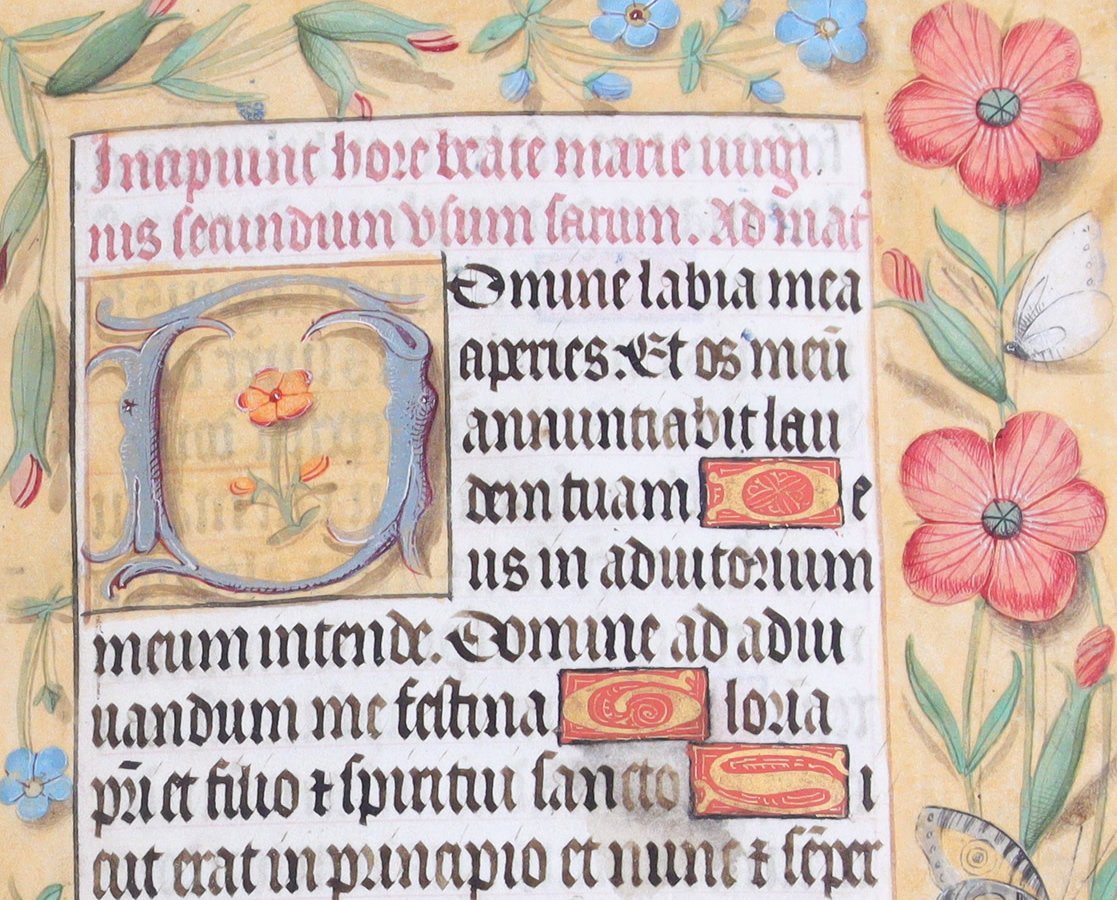 Incipiunt hore beate marie uirgi
nis secundum vsum sarum. Ad mat
Domine labia mea
aperies. Et os meū
annunciabit lau
dem tuam D e
us in adiutorium
meum intende. Domine ad adiu
uandum me festina G loria
pr̄i et filio ⁊ spiritui sancto S i
cut erat in principio et nunc ⁊ sēper